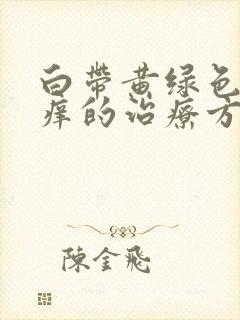 白带黄绿色
痒的治療方
陳金飛